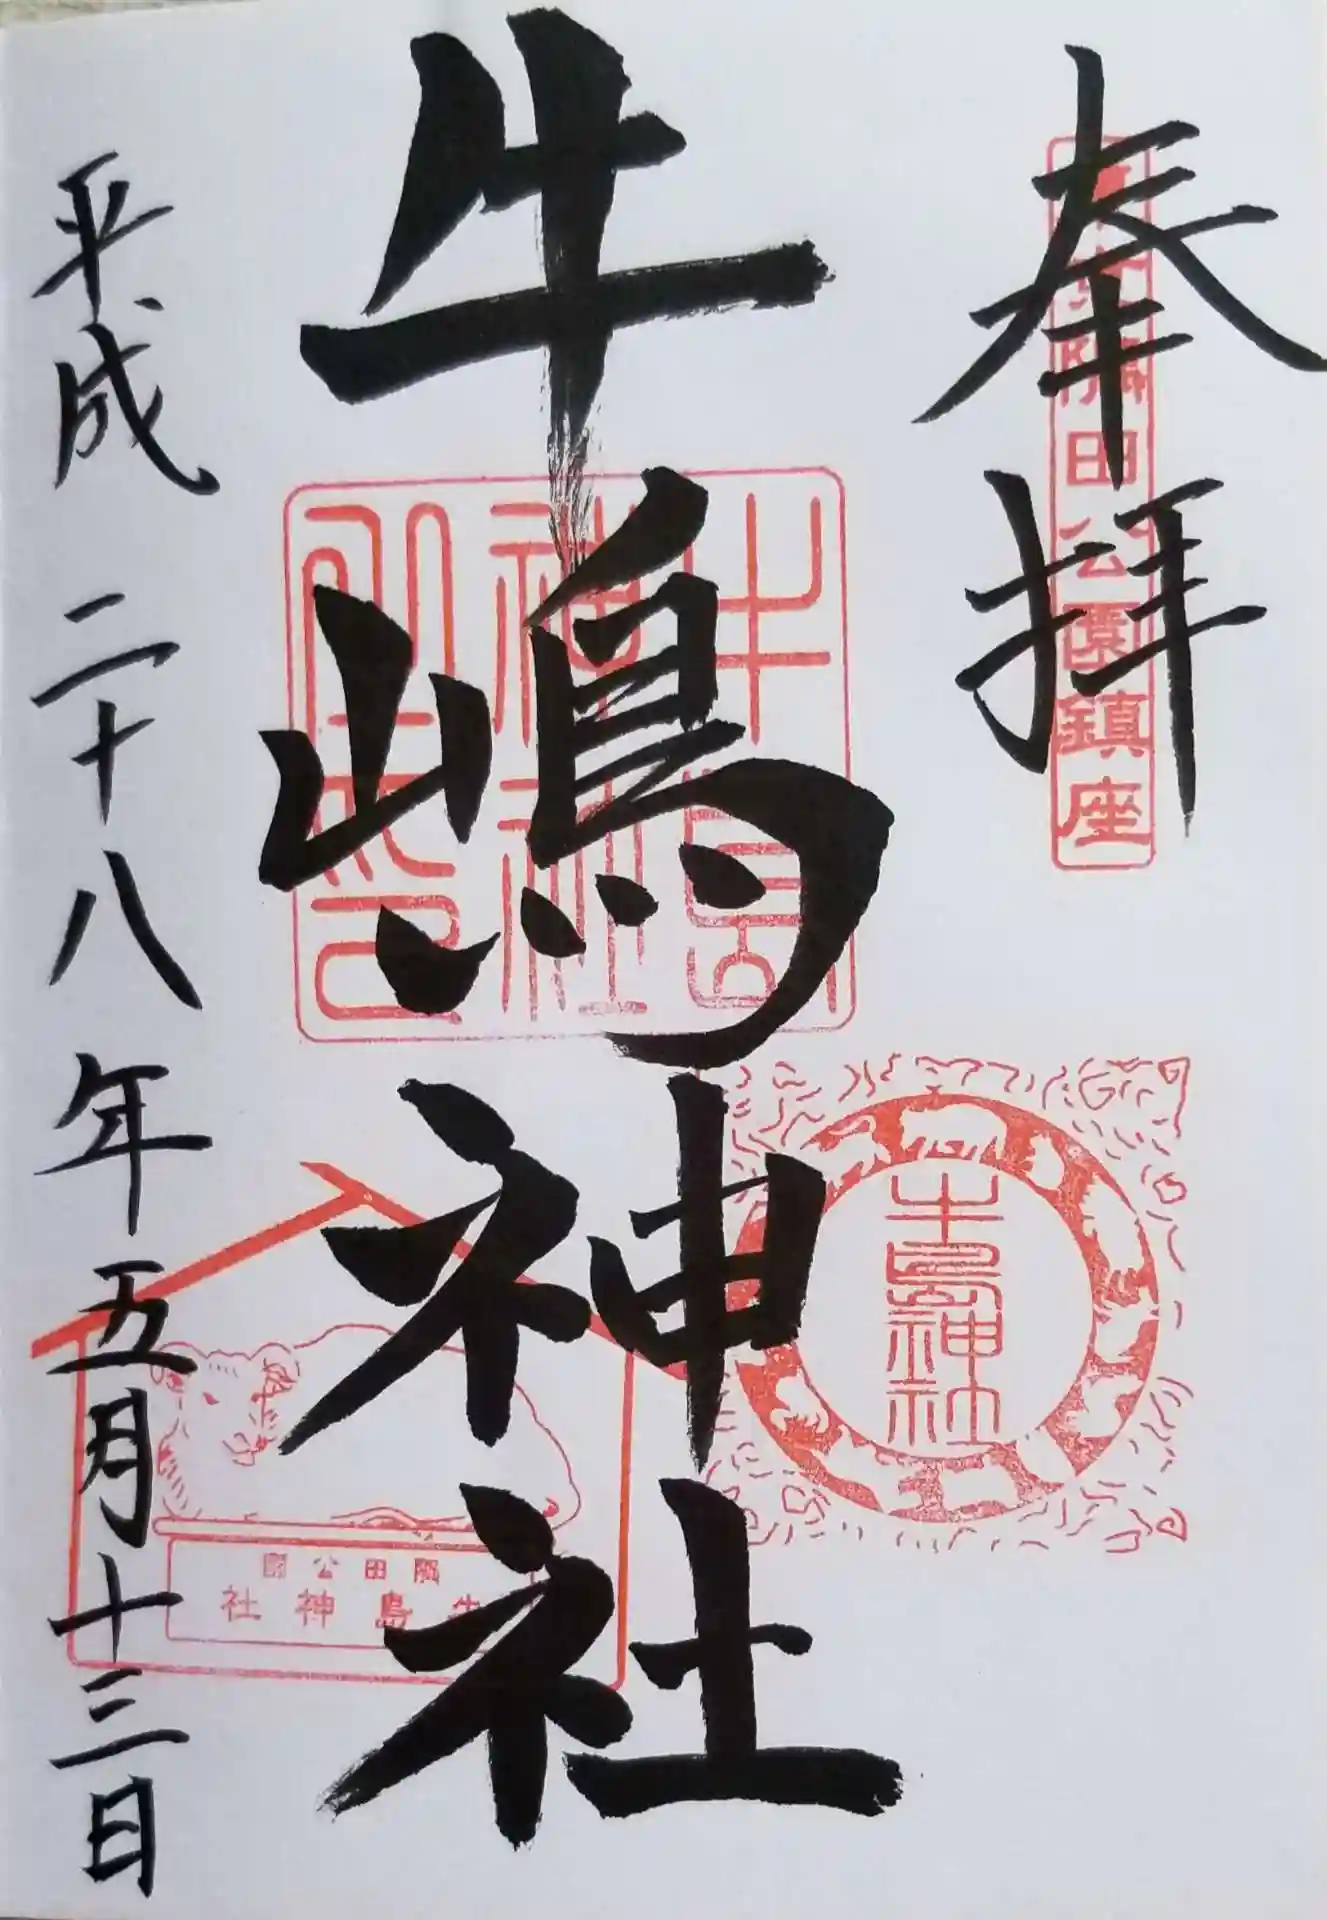 奉拝
隅田公園鎮座
牛嶋神社
牛島神社
隅田公園
牛島神社
平成二十八年五月十三日